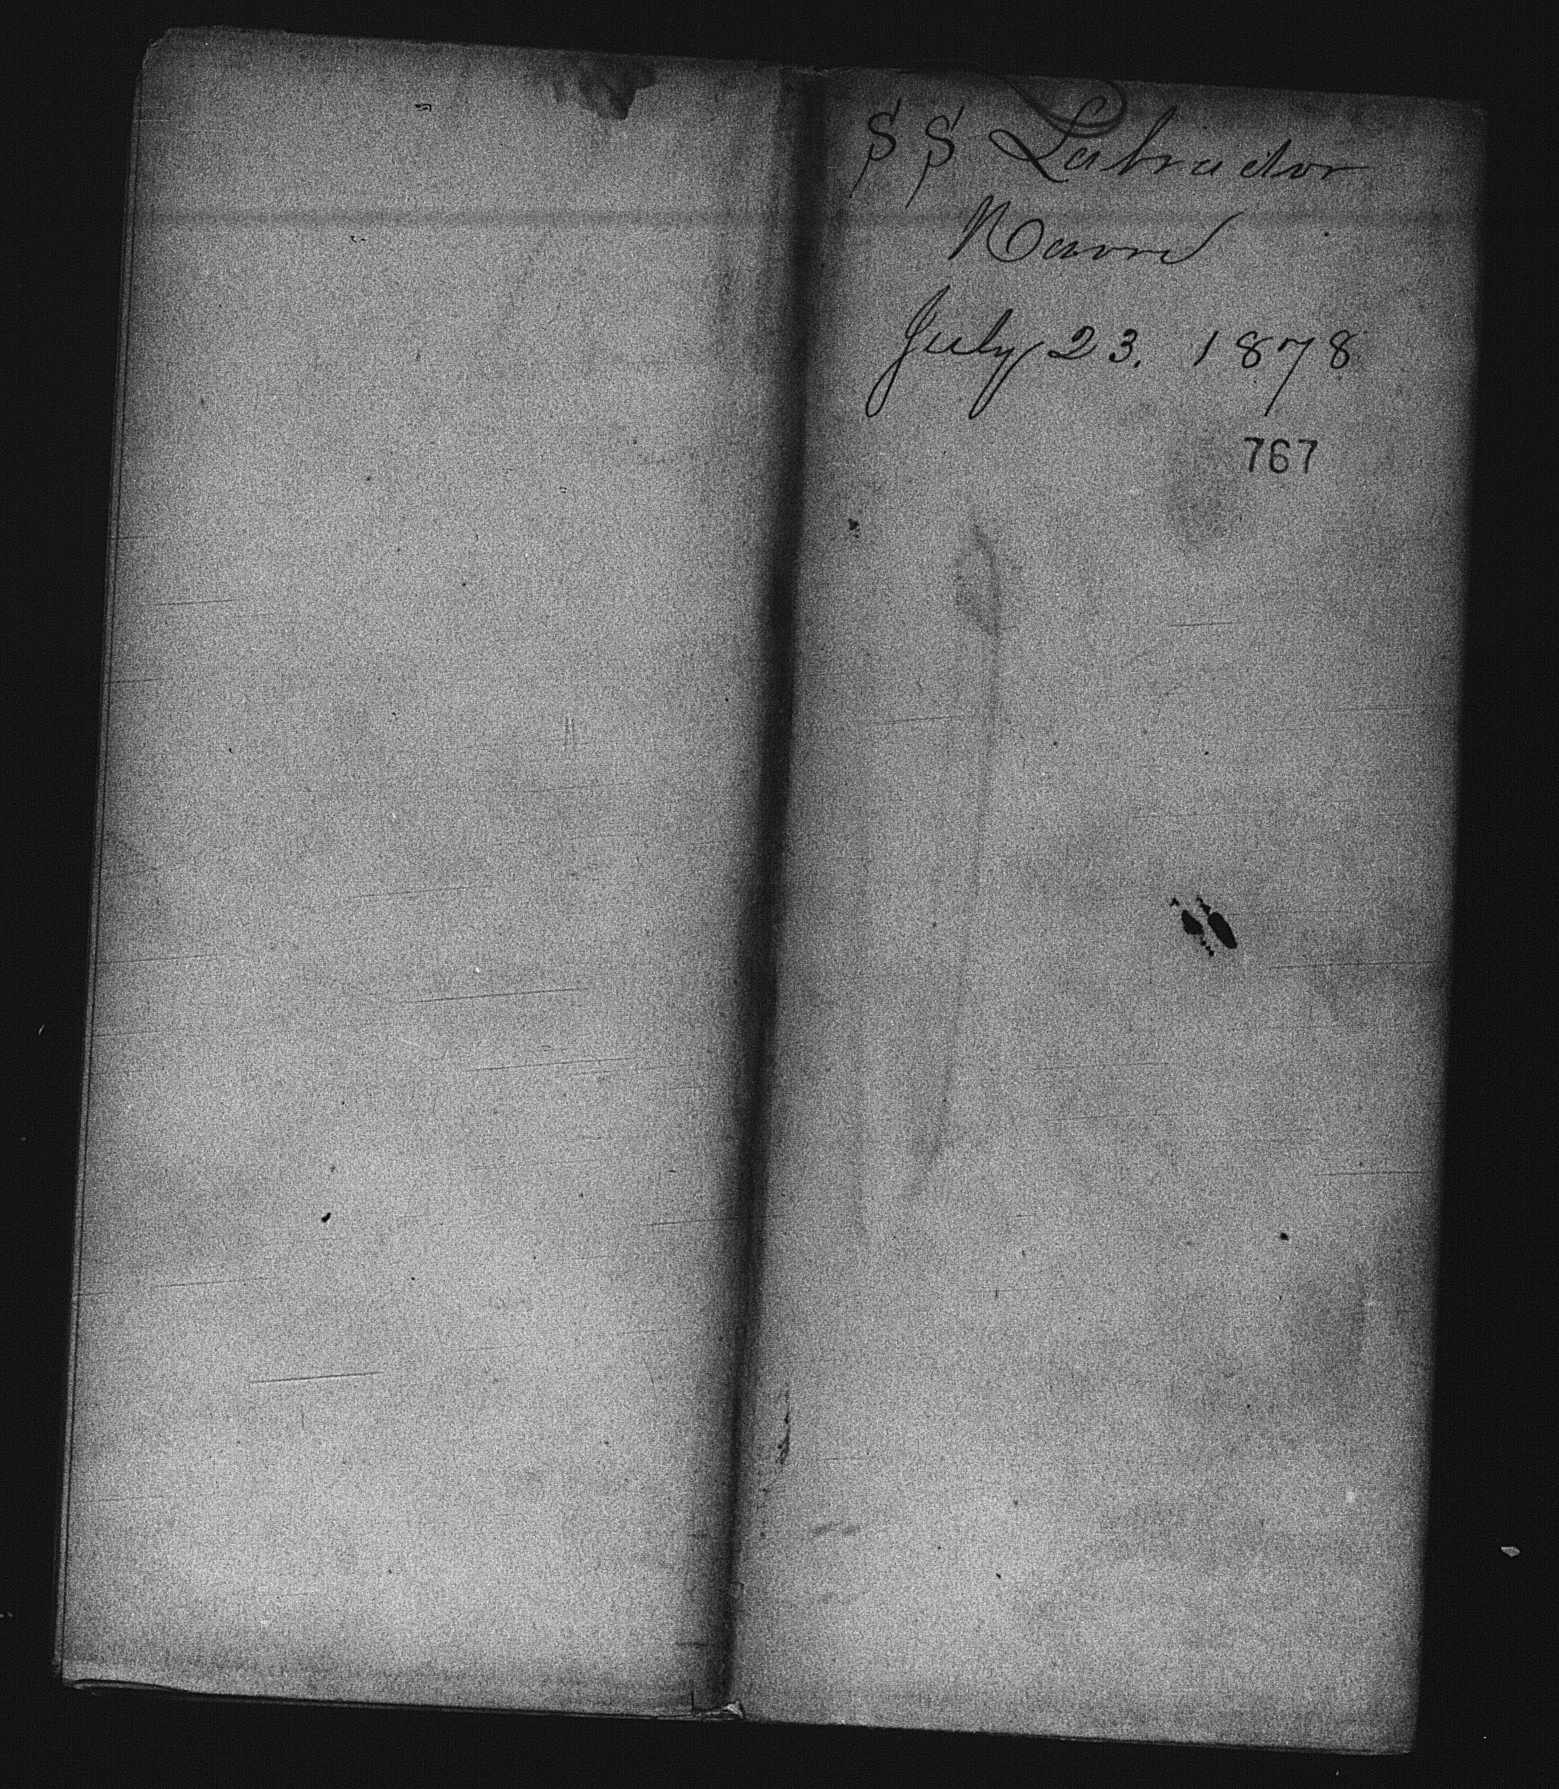 SS Labrador
Havre
July 23. 1878
767